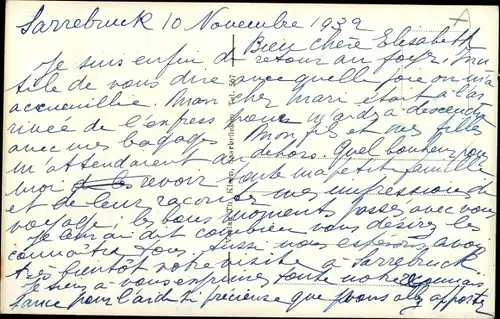 Sarrebruck 10 Novembre 1939
Bien chère Elisabeth
Je suis enfin de retour au foyer. Inu
tile de vous dire avec quelle joie on m'a
accueillie. Mon cher mari était à l'ar
rivée de l'express pour m'aider à descendre
avec mes bagages. Mon fils et mes filles
m'attendaient dehors. Quel bonheur pour
moi de revoir toute ma petite famille
et de leur raconter mes impressions de
voyage, les bons moments passés avec vous
Je leur ai dit combien vous désirez les
connaître tous. Aussi nous espérons avoir
très bientôt votre visite à Sarrebruck.
Je tiens à vous exprimer toute notre reconnais
sance pour l'aide si précieuse que vous avez apportée
Klein, Saarbrücken, Tel.